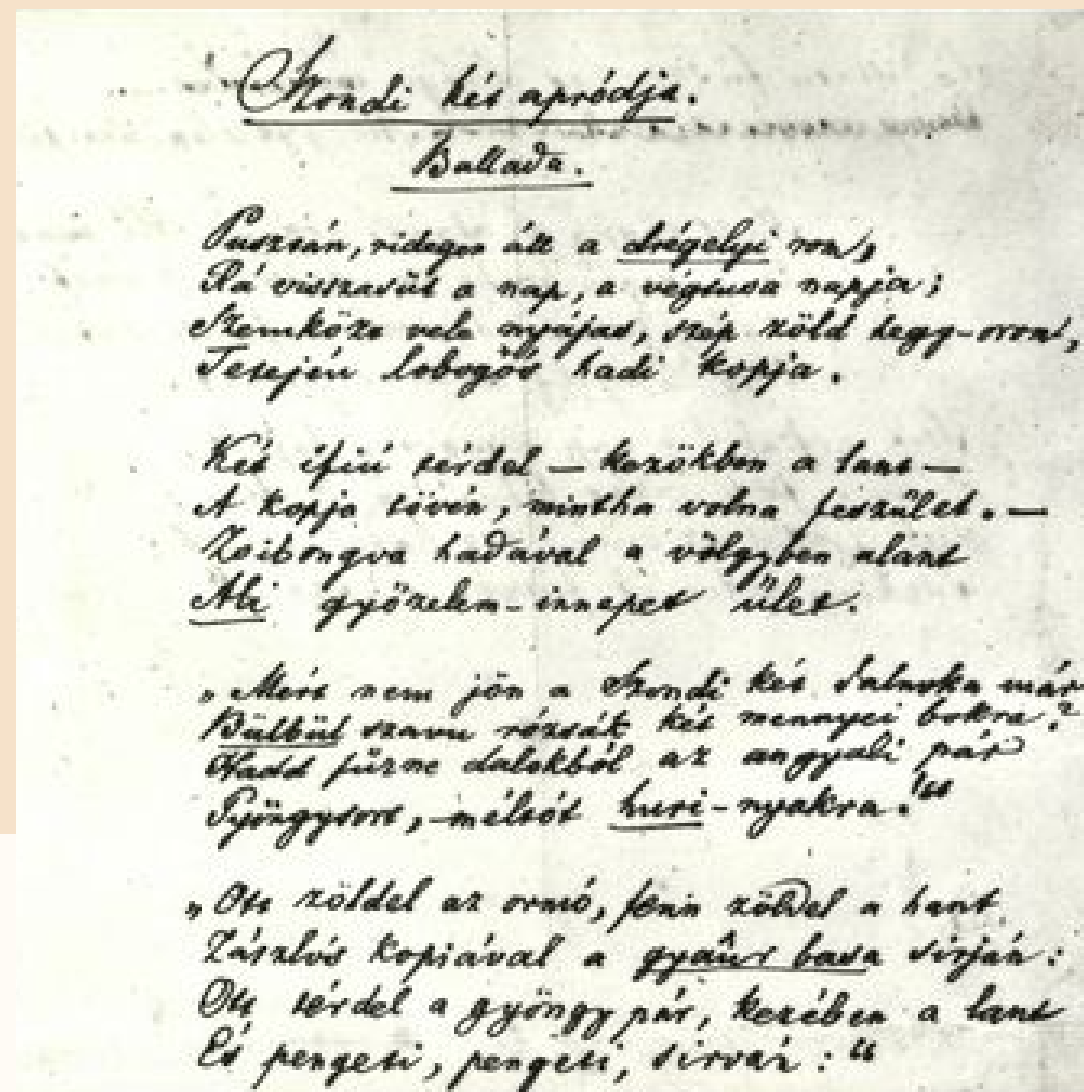 Szondi két apródja.
Ballada.
Pusztán, ridegen áll a drégelyi rom,
Rá visszasüt a nap, a végcsata napja;
Szemközt vele nyájas, szép zöld hegy-orom,
Tetején lobogós hadi kopja.
Két ífiú térdel — kezökben a lant —
A kopja tövén, mintha volna feszület. —
Zsibongva hadával a völgyben alant
Ali győzelem-innepet űlet.
„Mért nem jön a Szondi két dalnoka már
Bülbül szavu rózsák két mennyei bokra?
Hadd fűzne dalokból az angyali pár
Gyöngysort, — méltót huri-nyakra!“
„Ott zöldel az ormó, fenn zöldel a hant
Zászlós kopiával a gyaûr basa sirján:
Ott térdel a gyöngy pár, kezében a lant
És pengeti, pengeti, sirván:“